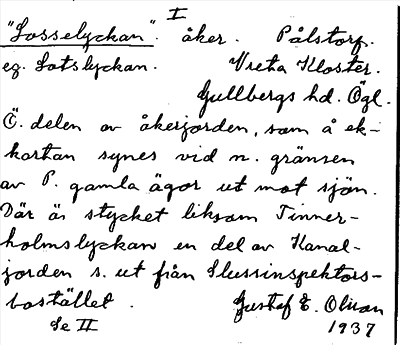 I
"Losselyckan". åker. Pålstorp.
eg. Lotslyckan. Vreta Kloster.
Gullbergs hd. Ögl.
Ö. delen av åkerjorden, som å ek-
kartan synes vid n. gränsen
av P. gamla ägor ut mot sjön.
Där är stycket liksom Tinner-
holmslyckan en del av Kanal-
jorden s. ut från Slussinspektors-
bostället. Gustaf E. Olsson
Se II 1937